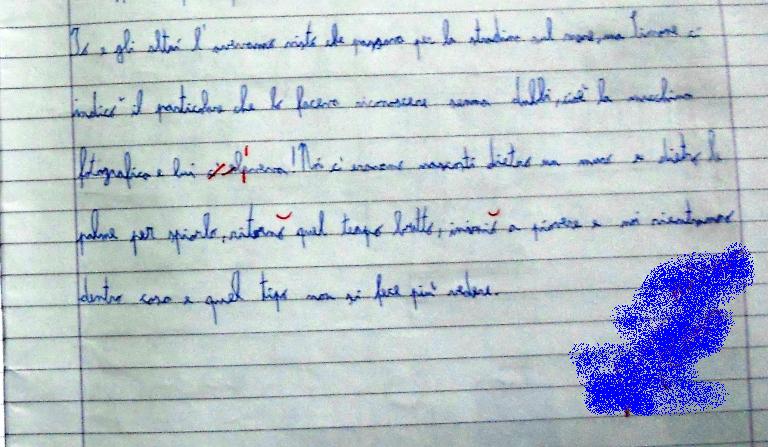 Io e gli altri l'avevamo visto che passava per la stradina sul mare, ma Simone ci
indicò il particolare che lo faceva riconoscere senza dubbi, cioè la macchina
fotografica e lui l'aveva! Noi ci eravamo nascosti dietro un muro e dietro le
palme per spiarlo, ritornò quel tempo brutto, iniziò a piovere e noi rientrammo
dentro casa e quel tipo non si fece più vedere.